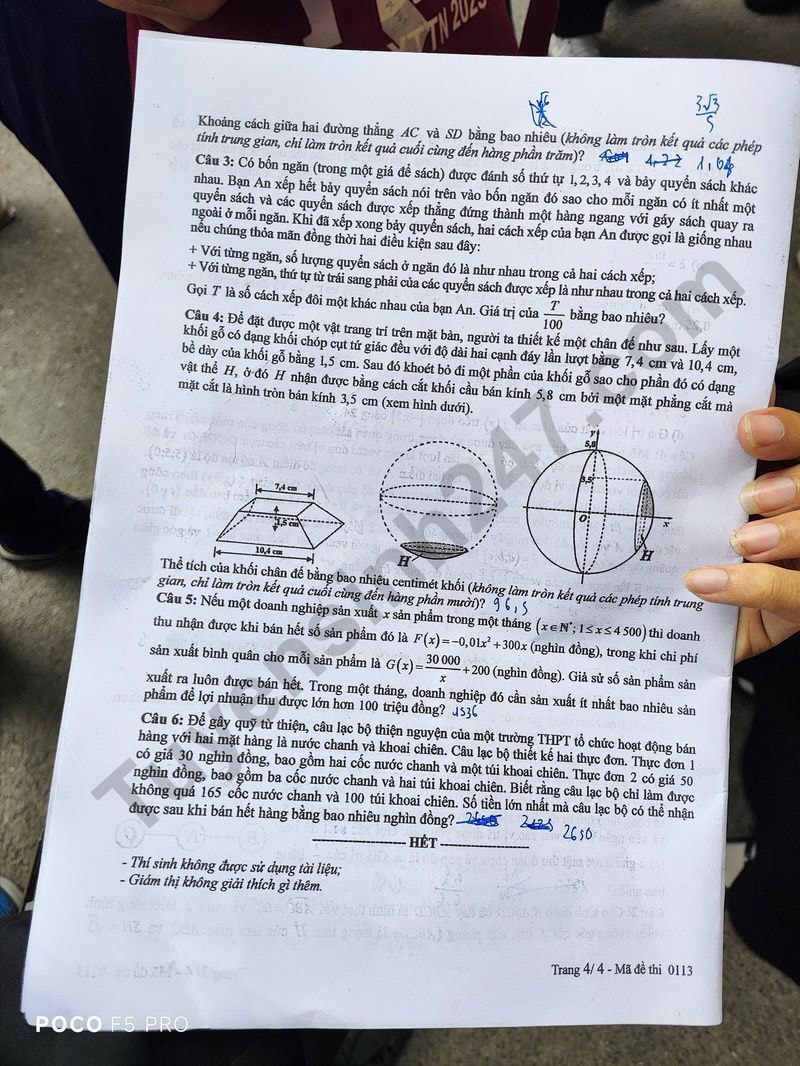 TN 2025
√6
3√3
5
Khoảng cách giữa hai đường thẳng AC và SD bằng bao nhiêu (không làm tròn kết quả các phép
tính trung gian, chỉ làm tròn kết quả cuối cùng đến hàng phần trăm)? 1,04
Câu 3: Có bốn ngăn (trong một giá để sách) được đánh số thứ tự 1, 2, 3, 4 và bảy quyển sách khác
nhau. Bạn An xếp hết bảy quyển sách nói trên vào bốn ngăn đó sao cho mỗi ngăn có ít nhất một
quyển sách và các quyển sách được xếp thẳng đứng thành một hàng ngang với gáy sách quay ra
ngoài ở mỗi ngăn. Khi đã xếp xong bảy quyển sách, hai cách xếp của bạn An được gọi là giống nhau
nếu chúng thỏa mãn đồng thời hai điều kiện sau đây:
+ Với từng ngăn, số lượng quyển sách ở ngăn đó là như nhau trong cả hai cách xếp;
+ Với từng ngăn, thứ tự từ trái sang phải của các quyển sách được xếp là như nhau trong cả hai cách xếp.
Gọi T là số cách xếp đôi một khác nhau của bạn An. Giá trị của T/100 bằng bao nhiêu?
Câu 4: Để đặt được một vật trang trí trên mặt bàn, người ta thiết kế một chân đế như sau. Lấy một
khối gỗ có dạng khối chóp cụt tứ giác đều với độ dài hai cạnh đáy lần lượt bằng 7,4 cm và 10,4 cm,
bề dày của khối gỗ bằng 1,5 cm. Sau đó khoét bỏ đi một phần của khối gỗ sao cho phần đó có dạng
vật thể H, ở đó H nhận được bằng cách cắt khối cầu bán kính 5,8 cm bởi một mặt phẳng cắt mà
mặt cắt là hình tròn bán kính 3,5 cm (xem hình dưới).
7,4 cm
1,5 cm
10,4 cm
H
y
5,8
3,5
O
x
H
Thể tích của khối chân đế bằng bao nhiêu centimét khối (không làm tròn kết quả các phép tính trung
gian, chỉ làm tròn kết quả cuối cùng đến hàng phần mười)? 96,5
Câu 5: Nếu một doanh nghiệp sản xuất x sản phẩm trong một tháng (x∈ℕ*; 1≤x≤4 500) thì doanh
thu nhận được khi bán hết số sản phẩm đó là F(x)=−0,01x²+300x (nghìn đồng), trong khi chi phí
sản xuất bình quân cho mỗi sản phẩm là G(x)=30 000/x+200 (nghìn đồng). Giả sử số sản phẩm sản
xuất ra luôn được bán hết. Trong một tháng, doanh nghiệp đó cần sản xuất ít nhất bao nhiêu sản
phẩm để lợi nhuận thu được lớn hơn 100 triệu đồng? 1536
Câu 6: Để gây quỹ từ thiện, câu lạc bộ thiện nguyện của một trường THPT tổ chức hoạt động bán
hàng với hai mặt hàng là nước chanh và khoai chiên. Câu lạc bộ thiết kế hai thực đơn. Thực đơn 1
có giá 30 nghìn đồng, bao gồm hai cốc nước chanh và một túi khoai chiên. Thực đơn 2 có giá 50
nghìn đồng, bao gồm ba cốc nước chanh và hai túi khoai chiên. Biết rằng câu lạc bộ chỉ làm được
không quá 165 cốc nước chanh và 100 túi khoai chiên. Số tiền lớn nhất mà câu lạc bộ có thể nhận
được sau khi bán hết hàng bằng bao nhiêu nghìn đồng? 2650
HẾT
- Thí sinh không được sử dụng tài liệu;
- Giám thị không giải thích gì thêm.
Trang 4/ 4 - Mã đề thi 0113
Tuyensinh247.com
POCO F5 PRO